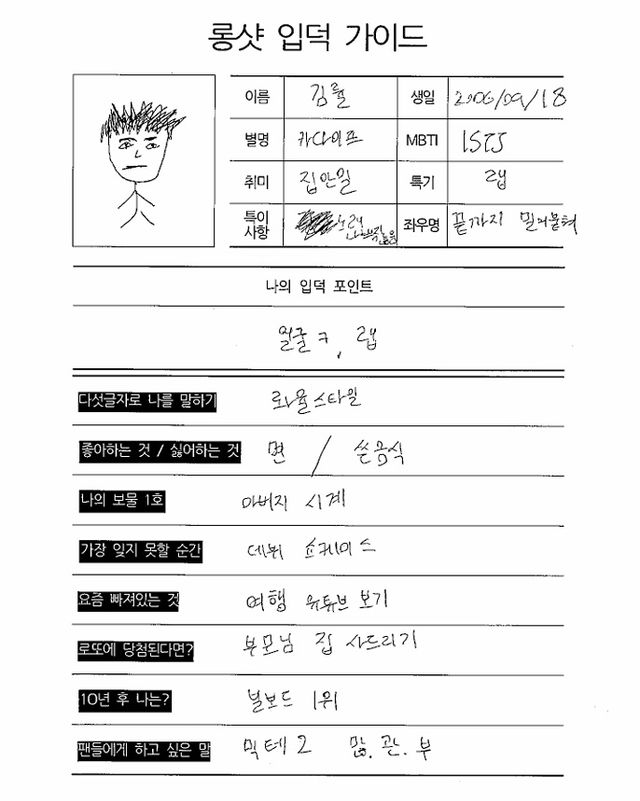 롱샷 입덕 가이드
이름 김률 생일 2006/09/18
별명 카다이프 MBTI ISTJ
취미 집안일 특기 랩
특이사항 좌우명 끝까지 밀어붙여
나의 입덕 포인트
얼굴ㅋ, 랩
다섯글자로 나를 말하기 롸율스타일
좋아하는 것 / 싫어하는 것 면 / 쓴음식
나의 보물 1호 아버지 시계
가장 잊지 못할 순간 데뷔 쇼케이스
요즘 빠져있는 것 여행 유튜브 보기
로또에 당첨된다면? 부모님 집 사드리기
10년 후 나는? 빌보드 1위
팬들에게 하고 싶은 말 믹테2 많.관.부